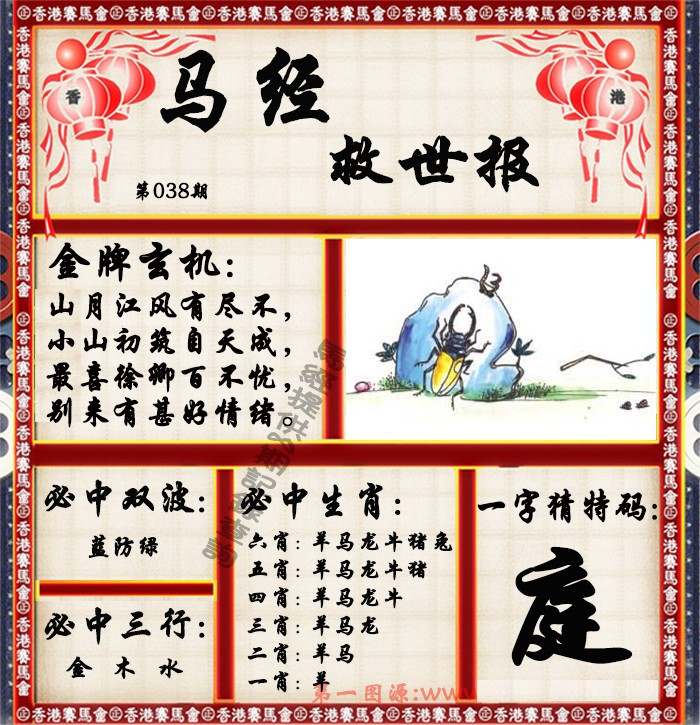 香港賽馬會
香
港
马经
救世报
第038期
金牌玄机：
山月江风有尽不，
小山初筑自天成，
最喜徐卿百不忧，
别来有甚好情绪。
必中双波：
蓝防绿
必中三行：
金 木 水
必中生肖：
六肖：羊马龙牛猪兔
五肖：羊马龙牛猪
四肖：羊马龙牛
三肖：羊马龙
二肖：羊马
一肖：羊
一字猜特码：
庭
第一图源:www